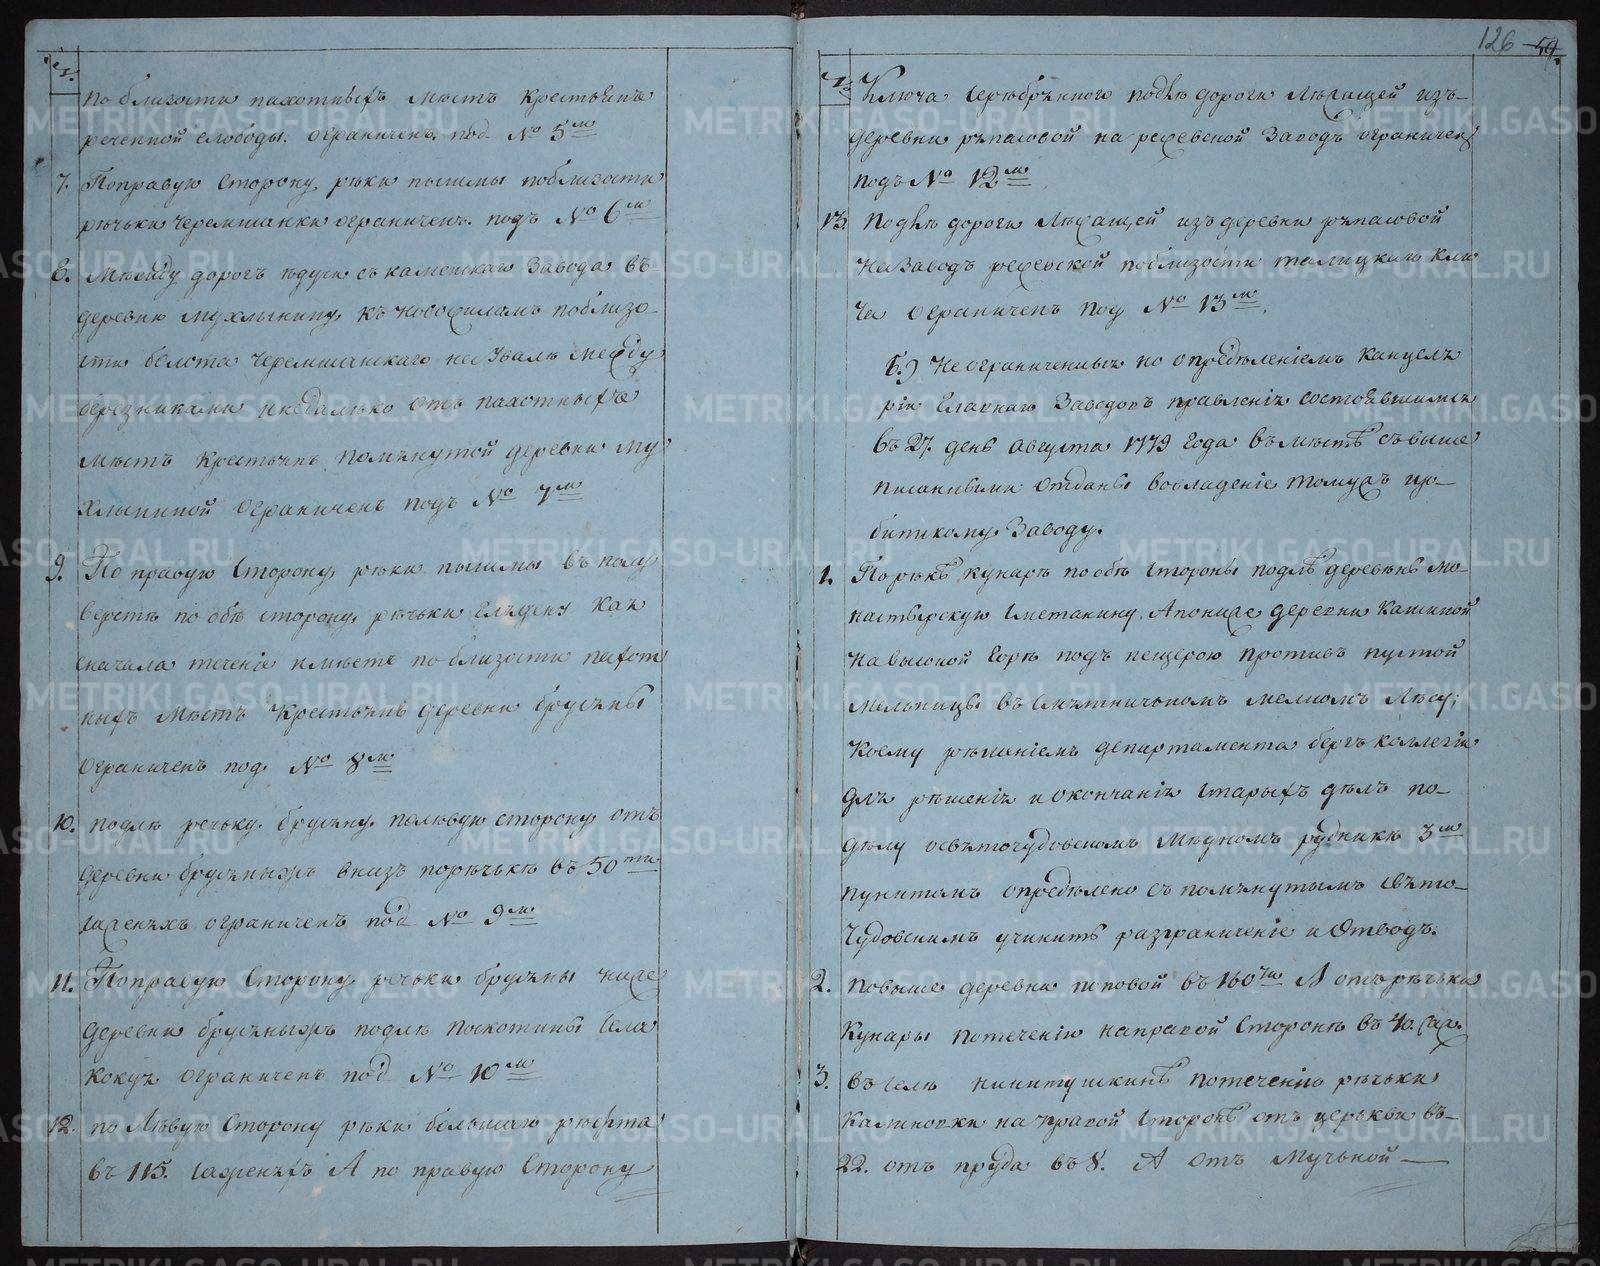 по близости пахотныхъ местъ крестьянъ
реченной слободы. ограниченъ. под № 5м
7. По правую сторону, реки пышмы поблизости
речьки черемшанки ограниченъ. подъ № 6м
8. Между дорогъ едучи съ каменскаго завода въ
деревню мухлынину, къ новопиламъ поблизо-
сти болота черемшанскаго на увале между
березниками недалеко отъ пахотныхъ
местъ крестьянъ помянутой деревни му
хлыниной ограниченъ подъ № 7м
9. По правую сторону, реки пышмы въ полу
версте по обе сторону, речьки
сначала течение имеетъ по близости пахот
ныхъ местъ крестьянъ деревни брусяны
ограниченъ под. № 8м
10. подле речьку. брусяну. полевую сторону отъ
деревни вниз поречьке въ 50ти
саженяхъ ограниченъ под № 9м
11. По правую сторону речьки брусяны ниже
деревни подле поскотины села
кокуя ограниченъ под № 10м
12. по левую сторону реки большаго рефта
въ 115. саженяхъ А по правую сторону
126
59.
Ключа серебрянного подле дороги лежащей изъ-
деревни режевской заводъ ограниченъ
подъ № 12м
13. Подле дороги лежащей изъ деревни
на заводъ режевской поблизости талицкаго клю
ча ограниченъ под № 13м.
б.) Неограниченныя по определениемъ канцеля
рии главнаго заводовъ правления состоявшимся
въ 27. день августа 1779 года вместе съ выше
писанными отданы вовладение томужъ
заводу.
1. По реке, кунаре по обе стороны подле деревень мо-
настырскую сметанину, А пониже деревни кашиной
на высокой горе подъ пещерою противъ пустой
мельницы въ мелкомъ лесу;
коему решениемъ департамента бергъ коллегии
для решения и окончания старыхъ делъ по-
делу осветочудовскомъ медномъ руднике 3м
пунктомъ определено съ помянутымъ свято-
чудовскимъ учинить разграничение и отводъ.
2. повыше деревни поповой въ 160ти А отъ речьки
кунары потечению на правой стороне въ 40. саж.
3. въ селе никитушкине потечению речьки
калиновки на правой стороне отъ церькви въ-
22. отъ пруда въ 8. А отъ мучьной
METRIKI.GASO-URAL.RU